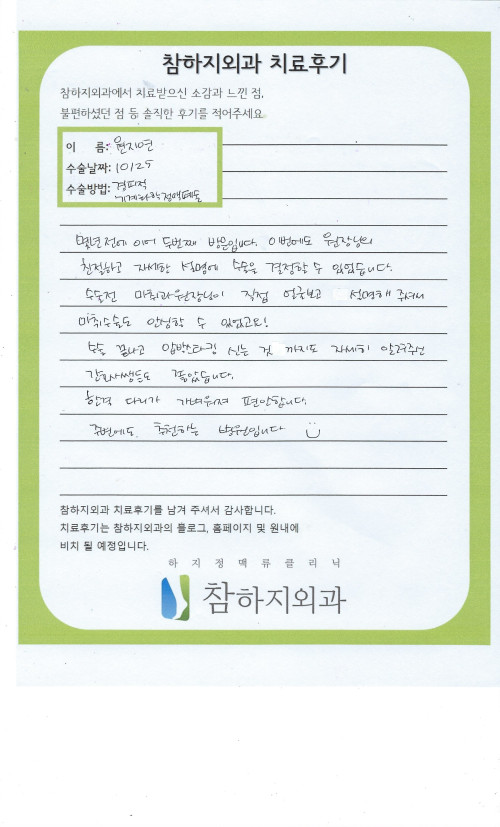 참하지외과 치료후기
참하지외과에서 치료받으신 소감과 느낀 점,
불편하셨던 점 등 솔직한 후기를 적어주세요
이 름: 원지연
수술날짜: 10/25
수술방법: 경피적
기계화학정맥폐쇄
몇년전에 이어 두번째 방문입니다. 이번에도 원장님의
친절하고 자세한 설명에 수술을 결정할 수 있었습니다.
수술전 마취과원장님이 직접 얼굴보고 설명해 주셔서
마취수술도 안심할 수 있었고요!
수술 끝나고 압박스타킹 신는 것 까지도 자세히 알려주신
간호사쌤들도 좋았습니다.
한결 다리가 가벼워져 편안합니다.
주변에도 추천하는 병원입니다
참하지외과 치료후기를 남겨 주셔서 감사합니다.
치료후기는 참하지외과의 블로그, 홈페이지 및 원내에
비치 될 예정입니다.
하지정맥류클리닉
참하지외과